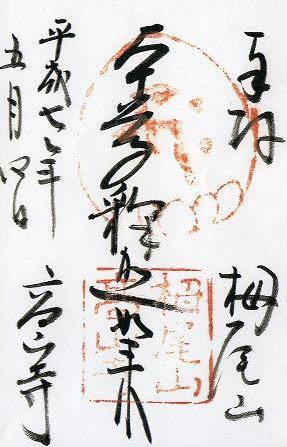 奉拝
栂尾山
本尊釋迦如来
平成七年
五月四日
高山寺
栂尾山
高山寺